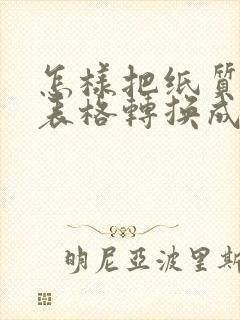 怎樣把纸質
表格轉換成
明尼亞波里斯